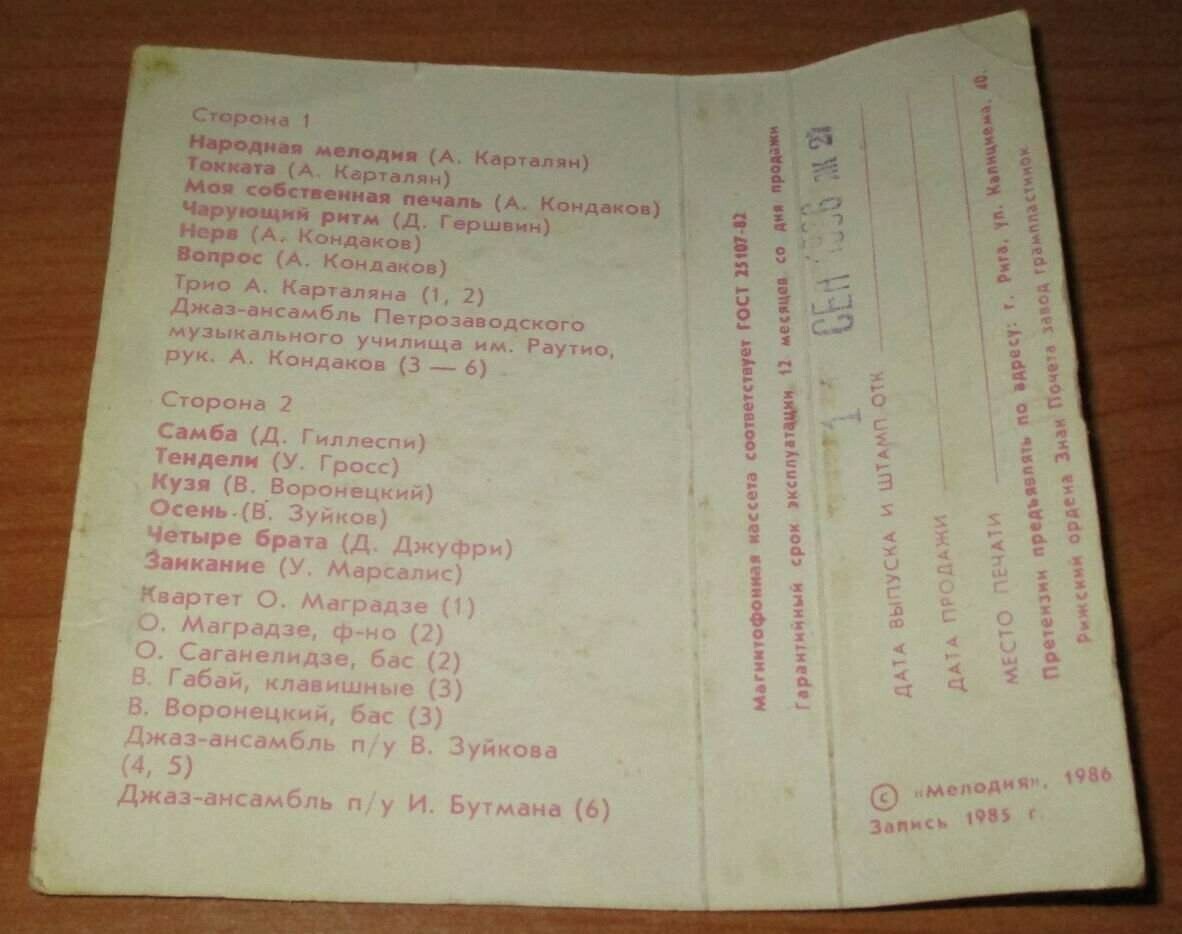 Сторона 1
Народная мелодия (А. Карталян)
Токката (А. Карталян)
Моя собственная печаль (А. Кондаков)
Чарующий ритм (Д. Гершвин)
Нерв (А. Кондаков)
Вопрос (А. Кондаков)
Трио А. Карталяна (1, 2)
Джаз-ансамбль Петрозаводского
музыкального училища им. Раутио,
рук. А. Кондаков (3 — 6)
Сторона 2
Самба (Д. Гиллеспи)
Тендели (У. Гросс)
Кузя (В. Воронецкий)
Осень (В. Зуйков)
Четыре брата (Д. Джуфри)
Заикание (У. Марсалис)
Квартет О. Маградзе (1)
О. Маградзе, ф-но (2)
О. Саганелидзе, бас (2)
В. Габай, клавишные (3)
В. Воронецкий, бас (3)
Джаз-ансамбль п/у В. Зуйкова
(4, 5)
Джаз-ансамбль п/у И. Бутмана (6)
Магнитофонная кассета соответствует ГОСТ 25107-82
Гарантийный срок эксплуатации 12 месяцев со дня продажи
1 СЕН 1986 27
ДАТА ВЫПУСКА И ШТАМП ОТК
ДАТА ПРОДАЖИ
МЕСТО ПЕЧАТИ
Претензии предъявлять по адресу: г. Рига, ул. Калнциема, 40.
Рижский ордена Знак Почета завод грампластинок
© «Мелодия», 1986
Запись 1985 г.